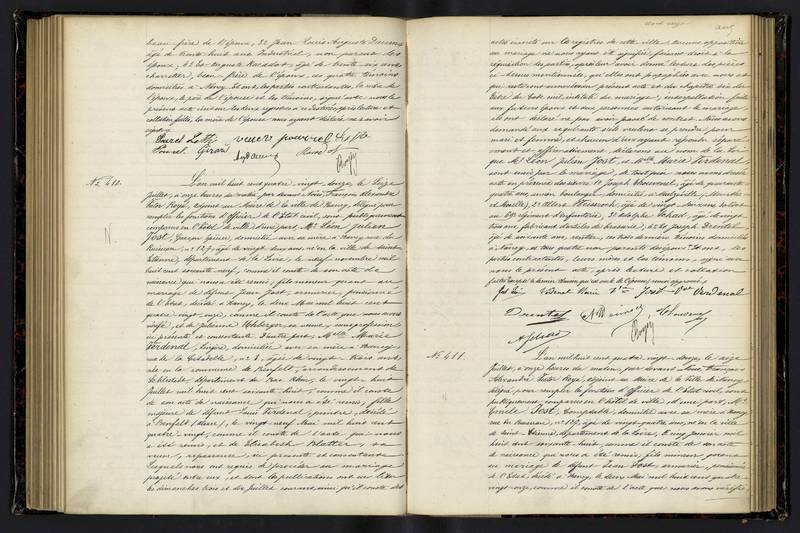 beau frère de l'époux, 3° Jean Louis Auguste
âgé de trente huit ans Industriel, non parent des
époux, 4° Auguste âgé de trente six ans
charretier, beau frère de l'époux, ces quatre témoins
domiciliés à Nancy. Et ont, les parties contractantes, la mère de
l'époux, le père de l'épouse et les témoins, signé avec nous le
présent acte après lecture et
collation faites, la mère de l'épouse ayant déclaré ne savoir
signer.
N° 410.
L'an mil huit cent quatre vingt douze, le seize
Juillet, à onze heures du matin, par devant Nous, François Alexandre
Victor adjoint au Maire de la ville de Nancy, délégué pour
remplir les fonctions d'officier de l'état civil, sont publiquement
comparus en l'hôtel de ville, d'une part, Mr Léon Julien
Jost, Garçon domicilié avec sa mère à Nancy, rue du
n° 127, âgé de vingt deux ans, né en la ville de Saint
Etienne, département de la Loire, le neuf novembre mil
huit cent soixante neuf, comme il conste de son acte de
naissance qui nous a été remis, fils mineur quant au
mariage de défunt Jean Jost, armurier, pensionné
de l'Etat, décédé à Nancy, le deux Mai mil huit cent
quatre vingt onze, comme il conste de l'acte que nous avons
vérifié, et de Julienne sa veuve, sans profession
ici présente et consentante. D'autre part, Melle Marie
Verdenal, Lingère, domiciliée avec sa mère à Nancy,
rue de la Citadelle, n° 1, âgée de vingt trois ans,
née en la commune de Benfeld, arrondissement de
Schlestadt, département du Bas Rhin, le vingt huit
Juillet mil huit cent soixante huit, comme il conste
de son acte de naissance qui nous a été remis, fille
majeure de défunt Louis Verdenal, peintre, décédé
à Benfeld (Alsace), le vingt neuf Mai mil huit cent
quatre vingt, comme il conste de l'acte qui nous
a été remis, et de Elisabeth Blatter, sa
veuve, repasseuse, ici présente et consentante
Lesquels nous ont requis de procéder au mariage
projeté entre eux, et dont les publications ont eu lieu
les dimanches trois et dix Juillet courant, ainsi qu'il conste des
actes inscrits sur les registres de cette ville. Aucune opposition
au mariage ne nous ayant été signifiée, faisant droit à la
réquisition des parties, après leur avoir donné lecture des pièces
ci-dessus mentionnées, qu'elles ont paraphées avec nous et
qui resteront annexées au présent acte et du chapitre six du
titre du Code civil, intitulé du mariage, interpellation faite
aux futurs époux et aux personnes autorisant le mariage
ils ont déclaré ne pas avoir passé de contrat. Nous avons
demandé aux requérants s'ils veulent se prendre pour
mari et femme, et chacun d'eux ayant répondu séparé
ment et affirmativement, déclarons au nom de la loi
que Mr Léon Julien Jost, et Melle Marie Verdenal,
sont unis par le mariage, de tout quoi nous avons dressé
acte en présence des sieurs: 1° Joseph âgé de quarante
quatre ans, boulanger, domicilié à Malzéville, (Meurthe
et Moselle), 2° Albert âgé de vingt six ans, soldat
au 69e régiment d'Infanterie, 3° Adolphe âgé de vingt
trois ans, fabricant d'articles de brasserie, 4° Joseph
âgé de soixante ans, rentier, ces trois derniers témoins domiciliés
à Nancy, et tous quatre non parents des époux. Et ont, les
parties contractantes, leurs mères et les témoins, signé avec
nous le présent acte, après lecture et collation
Verdenal Marie Vve Jost Vve Verdenal
N° 411.
L'an mil huit cent quatre vingt douze, le seize
Juillet, à onze heures du matin, par devant Nous, François
Alexandre Victor adjoint au Maire de la ville de Nancy,
délégué pour remplir les fonctions d'officier de l'état civil, sont
publiquement comparus en l'hôtel de ville, d'une part, Mr
Emile Jost, Comptable, domicilié avec sa mère à Nancy
rue du n° 127, âgé de vingt quatre ans, né en la ville
de Saint-Etienne, département de la Loire, le cinq Janvier mil
huit cent soixante huit, comme il conste de son acte
de naissance qui nous a été remis, fils mineur quant
au mariage de défunt Jean Jost armurier, pensionné
de l'Etat, décédé à Nancy, le deux Mai mil huit cent quatre
vingt onze, comme il conste de l'acte que nous avons vérifié,